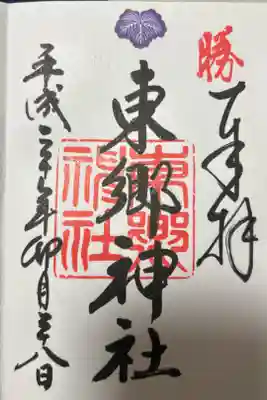 勝
奉拝
東郷神社
東郷
神社
平成年卯月八日